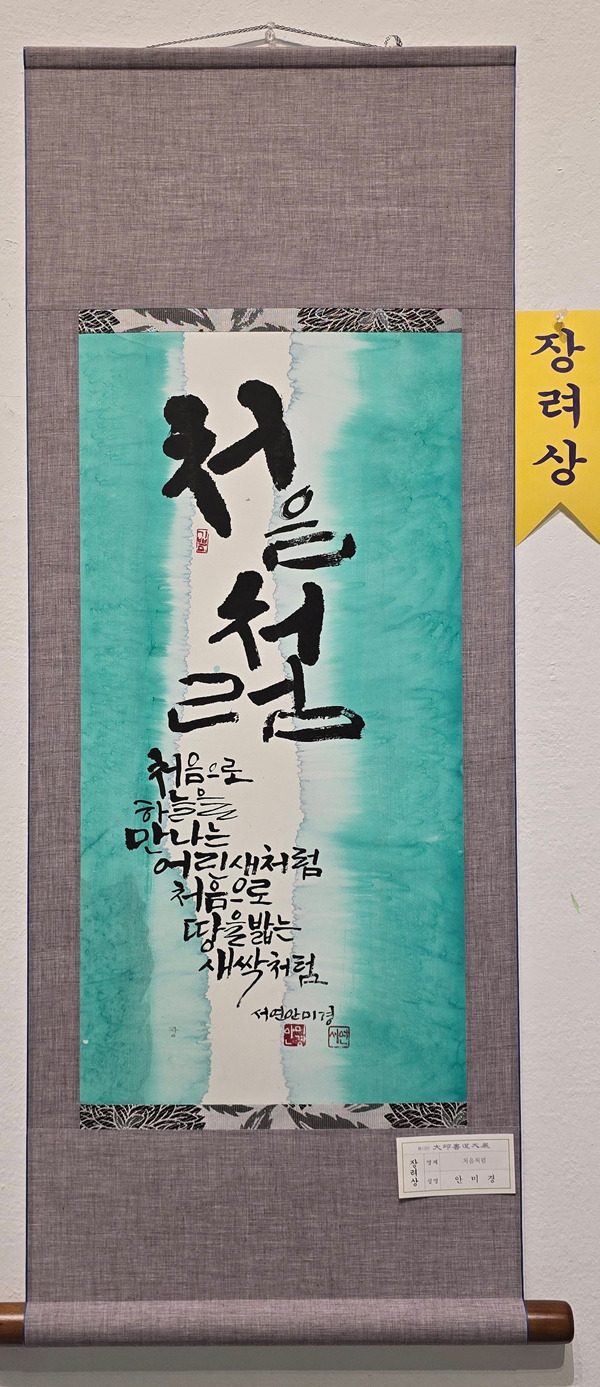 장려상
처음
처럼
처음으로
하늘을
만나는
어린새처럼
처음으로
땅을밟는
새싹처럼
서연안미경
안미경
서연
장려상
명제 처음처럼
성명 안 미 경